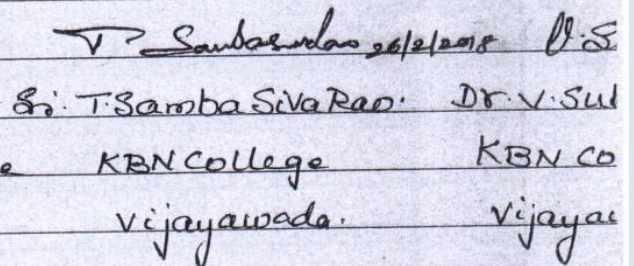 T Sambasivarao 26/2/2018 V.S
Sri. T. Samba Siva Rao. Dr. V. Sul
e KBN College KBN Co
Vijayawada. Vijaya